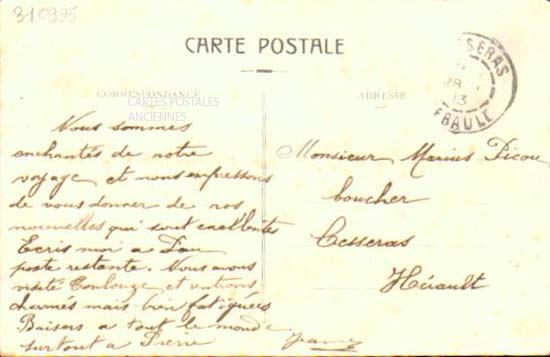 310995
CARTE POSTALE
CORRESPONDANCE
CARTES POSTALES
ANCIENNES
ADRESSE
SSERAS
28
13
ERAULT
Nous sommes
enchantés de notre
voyage et nous empressons
de vous donner de nos
nouvelles qui sont excellentes
Ecris moi a Pau
poste restante. Nous avons
visité Toulouse et
charmés mais bien fatiguées
Baisers a tout le monde
surtout a Pierre
Jeanne
Monsieur Marius Picou
boucher
Cesseras
Hérault